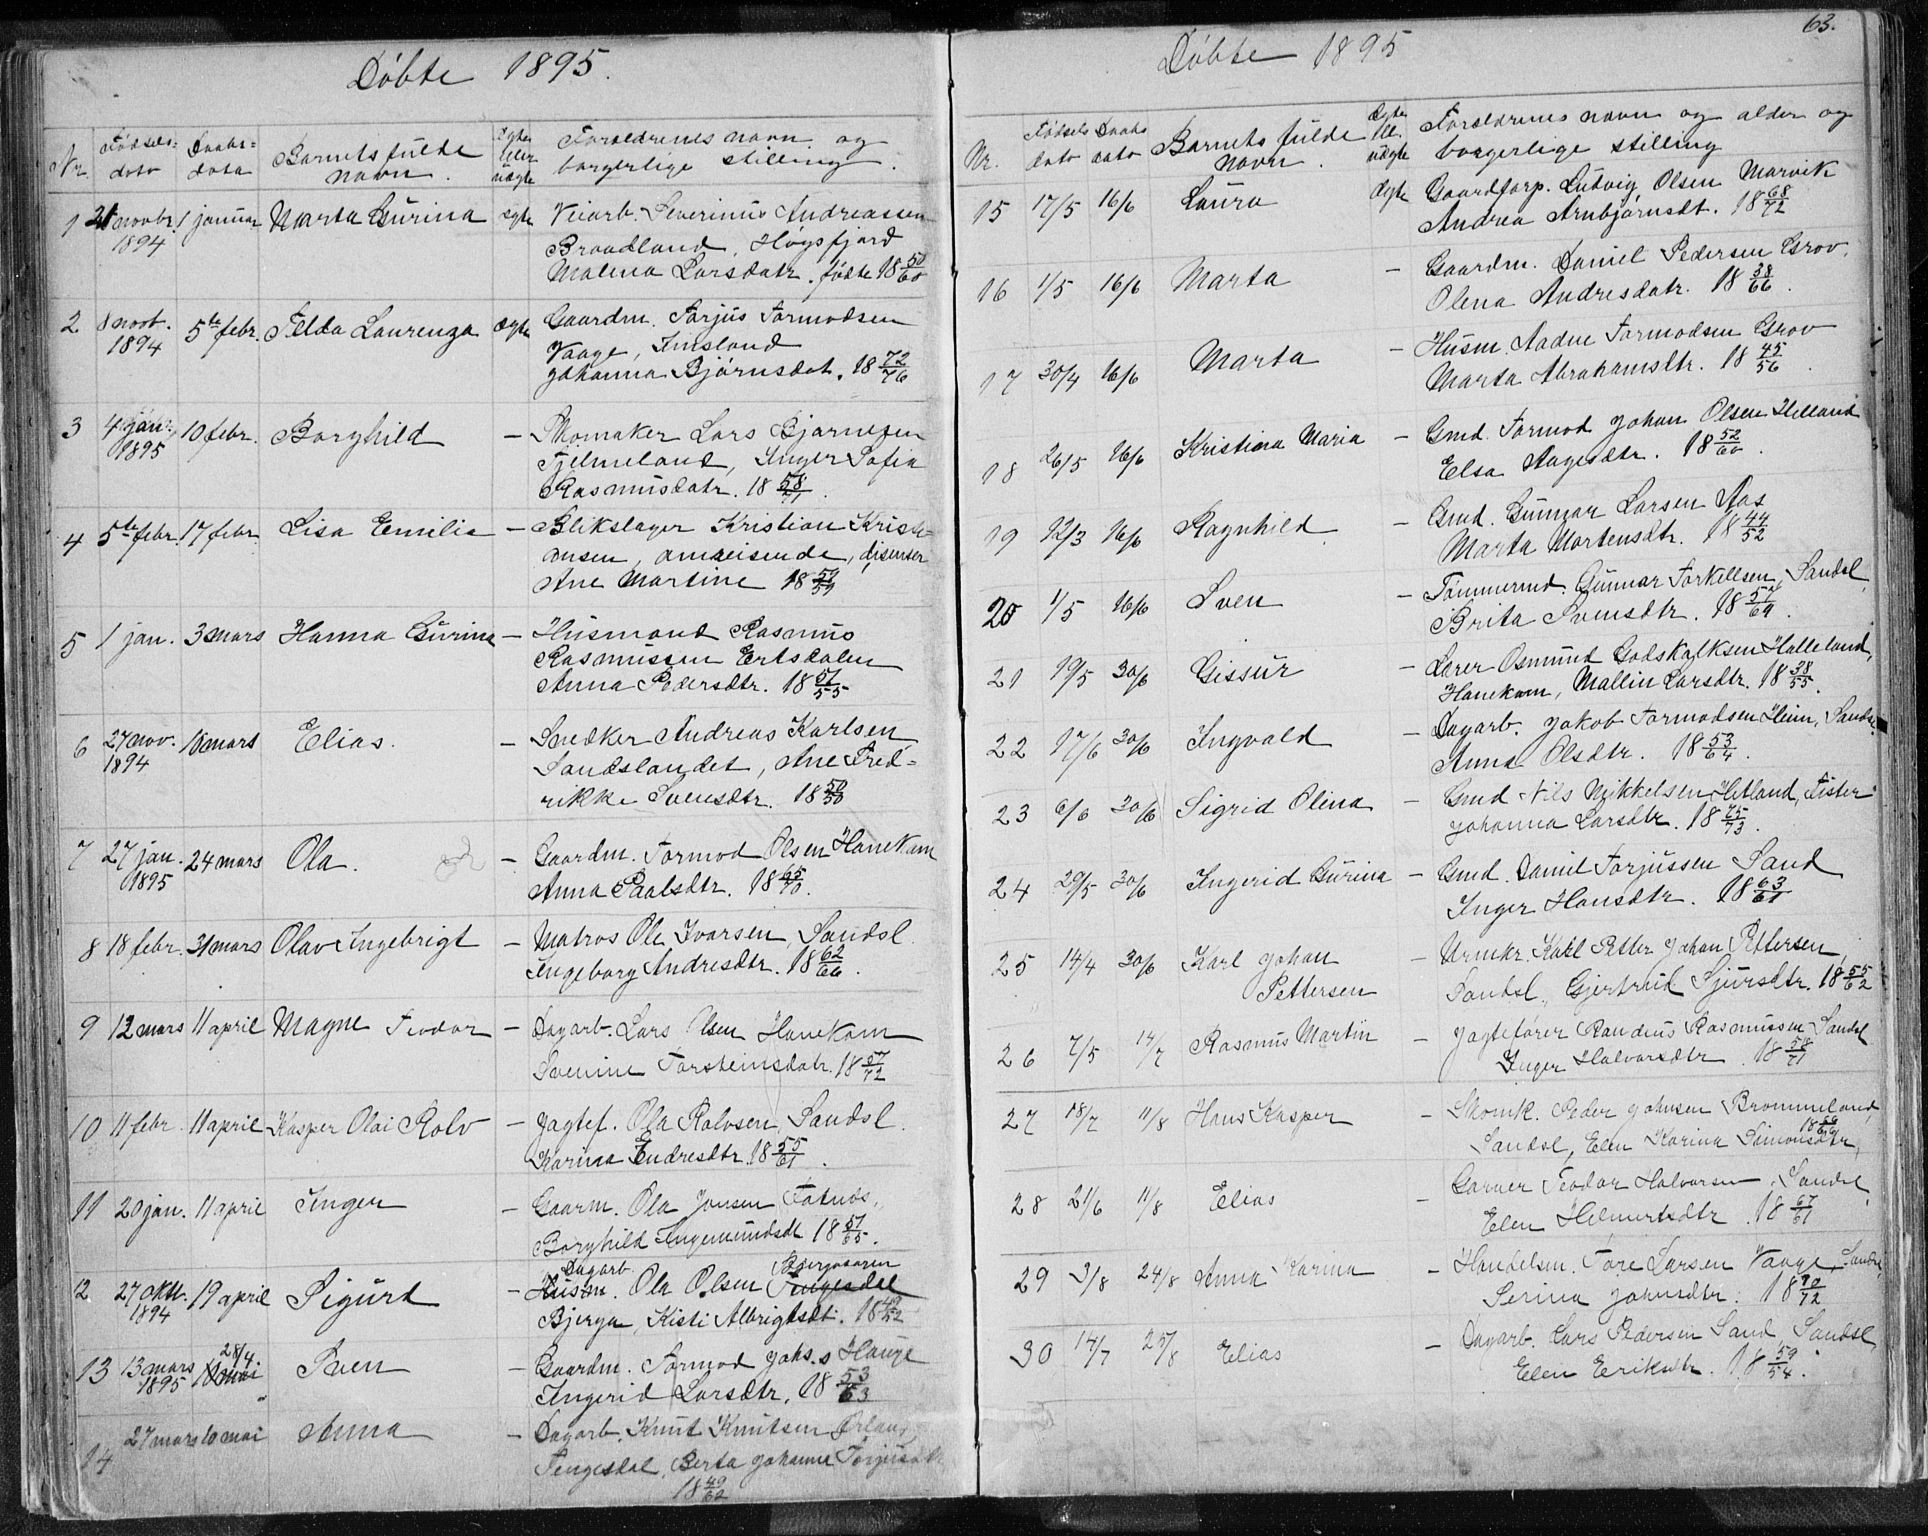 Döbte 1895.
Nr. Födsels- dato Daabs- dato Barnets fulde navn. Ægte eller uægte Foreldrenes navn og borgerlige stilling.
1 21 novbr. 1894 1 januar Marta Gurina egte Veiarb. Severinus Andreassen
Braadland, Høgsfjord
Malena Larsdatr. fødte 18 50/60
2 8 novb. 1894 5te febr. Telda Laurenza ægte Gaardm. Torjus Tormodsen
Vaage, Imsland
Johanna Bjørnsdat. 18 72/76
3 4 jan. 1895 10 febr. Borghild — Skomaker Lars Bjarnesen
Tjelmeland, Inger Sofia
Rasmusdatr. 18 58/71.
4 5te febr. 17 febr. Lisa Emilie — Blikslager Kristian Kristi-
ansen, omreisende, disenter
Ane Martine 18 59/59
5 1 jan. 3 mars Hanna Gurine — Husmand Rasmus
Rasmussen Ertsdalen
Anna Pedersdtr. 18 51/55
6 27 nov. 1894 10 mars Elias. — Snedker Andreas Karlsen
Sandslandet, Ane Fred=
rikke Svensdtr. 18 50/50
7 27 jan. 1895 24 mars Ola. — Gaardm. Tormod Olsen Hanekam
Anna Paalsdtr. 18 65/70.
8 18 febr. 31 mars Olav Ingebrigt — Matros Ole Ivarsen, Sandsl.
Ingeborg Andresdtr. 18 62/66.
9 12 mars 11 april Magne Teodor — Dagarb. Lars Olsen Hanekam
Severine Torsteinsdatr. 18 57/72
10 11 febr. 11 april Kasper Olai Rolv — Jagtef. Ola Rolvsen, Sandsl.
Karina Endresdtr. 18 55/61.
11 20 jan. 11 april Inger — Gaarm. Ola Jonsen Fatnes,
Borghild Ingemundsdt. 18 57/65.
Dagarb.
12 27 oktb. 1894 19 april Sigurd — Husm. Ola Olsen Tengesdal
Bjerga, Kisti Albrigtsdt. 18 49/52
13 13 mars 1895 28/4 10 mai Sven — Gaardm. Tormod Johs.s Hauge
Ingerid Larsdtr. 18 53/53
14 27 mars 10 mai Anna — Dagarb. Knut Knutsen Ørland,
Tengesdal, Berta Johanna Torjusdtr
18 49/62
63.
Döbte 1895
Nr. Fødsels dato Daabs dato Barnets fulde navn. Ægte ell. uægte Foreldrenes navn og alder og borgerlige stilling
15 17/5 16/6 Laura ægte Gaardforp. Ludvig Olsen Marvik
Andrea Arnbjørnsdt. 18 68/72
16 1/5 16/6 Marta — Gaardm. Daniel Pedersen Grov,
Olena Andresdatr. 18 38/66.
17 30/4 16/6 Marta — Husm. Aadne Tormodsen Grov
Marta Abrahamsdtr. 18 45/56.
18 26/5 16/6 Kristina Maria — Gmd. Tormod Johan Olsen Helland
Elsa Aagesdtr. 18 52/60.
19 12/3 16/6 Ragnhild — Gmd. Gunnar Larsen Aas
Marta Mortensdtr. 18 44/52
20 1/5 16/6 Sven — Tømmermd. Gunnar Torkellsen, Sandsl.
Brita Svensdtr. 18 57/69.
21 19/5 30/6 Gissur — Lærer Osmund Godskalksen Halleland,
Hanekam, Mallin Larsdtr. 18 38/55.
22 17/6 30/6 Ingvald — Dagarb. Jakob Tormodsen Heim, Sandsl.
Anna Olsdtr. 18 53/64.
23 6/6 30/6 Sigrid Olina — Gmd Nils Mikkelsen Hetland, Fister
Johanna Larsdtr. 18 75/73.
24 29/5 30/6 Ingerid Gurina — Gmd. Daniel Torjussen Sand
Inger Hansdtr. 18 63/61
25 14/4 30/6 Karl Johan Pettersen — Urmkr. Karl Petter Johan Pettersen,
Sandsl., Gjertrud Sjursdtr. 18 55/62
26 7/5 14/7 Rasmus Martin — Jagtefører Randeus Rasmussen Sandsl
Inger Halvorsdtr. 18 58/71
27 18/7 11/8 Hans Kasper — Skomk. Peder Johnsen Brommeland,
Sandsl, Elen Karina Simonsdtr,
28 21/6 11/8 Elias — Garver Teodor Halvorsen, Sandsl,
Elen Helmertsdtr. 18 67/61
29 3/8 24/8 Anna Karina — Handelsm. Tore Larsen Vaage, Sandsl,
Serina Johnsdtr. 18 70/72
30 14/7 25/8 Elias — Dagarb. Lars Pedersen Sand, Sandsl,
Elen Eriksdtr. 18 59/54.